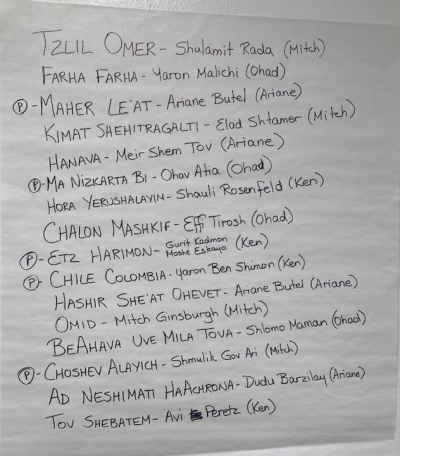 TZLIL OMER - Shulamit Rada (Mitch)
FARHA FARHA - Yaron Malichi (Ohad)
Ⓟ-MAHER LE'AT - Ariane Butel (Ariane)
KIMAT SHEHITRAGALTI - Elad Shtamer (Mitch)
HANAVA - Meir Shem Tov (Ariane)
Ⓟ-MA NIZKARTA BI - Ohav Atia (Ohad)
HORA YERUSHALAYIN - Shauli Rosenfeld (Ken)
CHALON MASHKIF - Effi Tirosh (Ohad)
Ⓟ-ETZ HARIMON - Gurit Kadmon Moshe Eskayo (Ken)
Ⓟ- CHILE COLOMBIA - Yaron Ben Shimon (Ken)
HASHIR SHE'AT OHEVET - Ariane Butel (Ariane)
OMID - Mitch Ginsburgh (Mitch)
BEAHAVA UVE MILA TOVA - Shlomo Maman (Ohad)
Ⓟ-CHOSHEV ALAYICH - Shmulik Gov Ari (Mitch)
AD NESHIMATI HAACHRONA - Dudu Barzilay (Ariane)
TOV SHEBATEM - Avi Peretz (Ken)